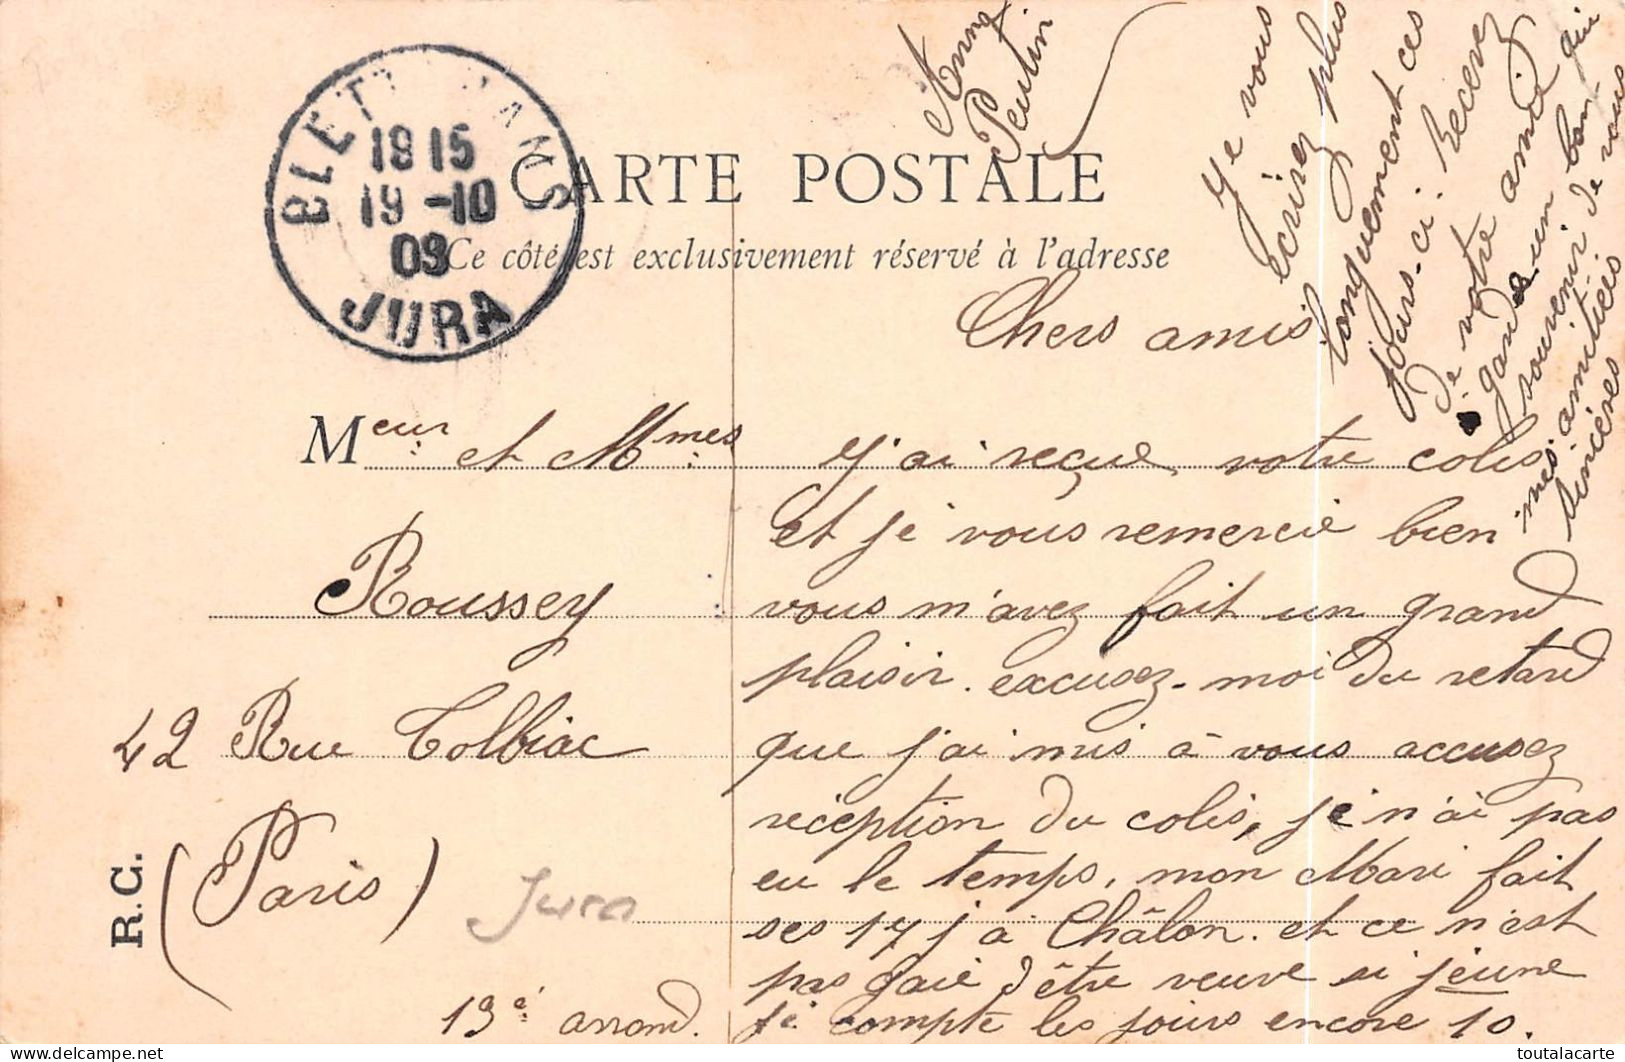 BLET ANS
18 15
19 -10
09
JURA
CARTE POSTALE
Ce côté est exclusivement réservé à l'adresse
Meur et Mmes
Roussey
42 Rue Tolbiac
(Paris)
Jura
13e arrond.
R.C.
Chers amis.
J'ai reçue votre colis
et je vous remercie bien
vous m'avez fait un grand
plaisir. excusez-moi du retard
que j'ai mis à vous accusez
réception du colis, je n'ai pas
eu le temps, mon Mari fait
ses 17 j à Châlon. et ce n'est
pas gaie d'être veuve si jeune
je compte les jours encore 10.
Je vous
écrirez plus
longuement ces
jours-ci. Recevez
de votre amie qui
garde un bon
souvenir de vous
mes amitiés
sincères
Anna
toutalacarte